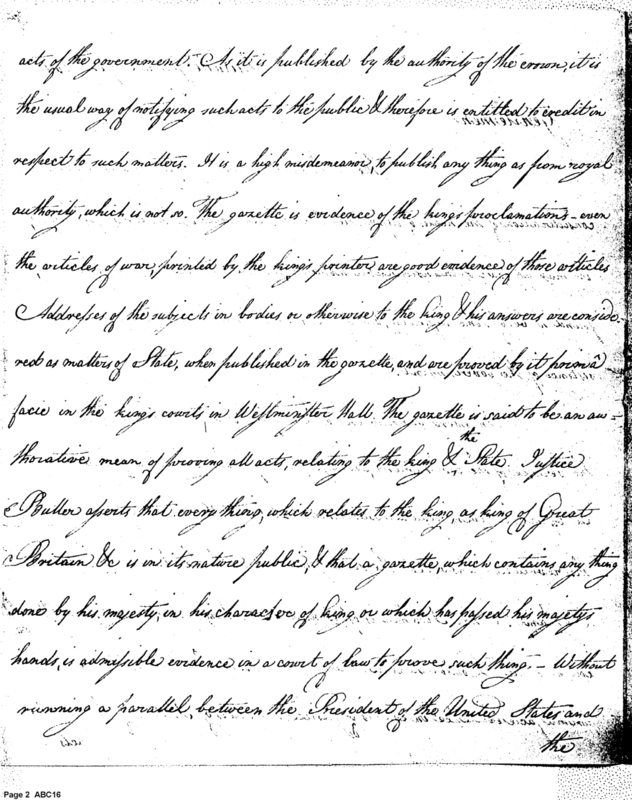 acts of the government. As it is published by the authority of the crown, it is
the usual way of notifying such acts to the public & therefore is entitled to credit in
respect to such matters. It is a high misdemeanor, to publish any thing as from royal
authority, which is not so. The gazette is evidence of the kings proclamations – even
the articles of war, printed by the king's printer are good evidence of those articles
Addresses of the subjects in bodies or otherwise to the king & his answers are conside-
red as matters of State, when published in the gazette, and are proved by it primâ
facie in the kings courts in Westminster Hall. The gazette is said to be an au=
thorative mean of proving all acts, relating to the king & the State. Justice
Buller asserts that every thing, which relates to the king as king of Great
Britain &c is in its nature public, & that a gazette which contains any thing
done by his majesty, in his character of king or which has passed his majestys
hands, is admissible evidence in a court of law to prove such thing. – Without
running a parallel, between the President of the United States and
the
Page 2 ABC16